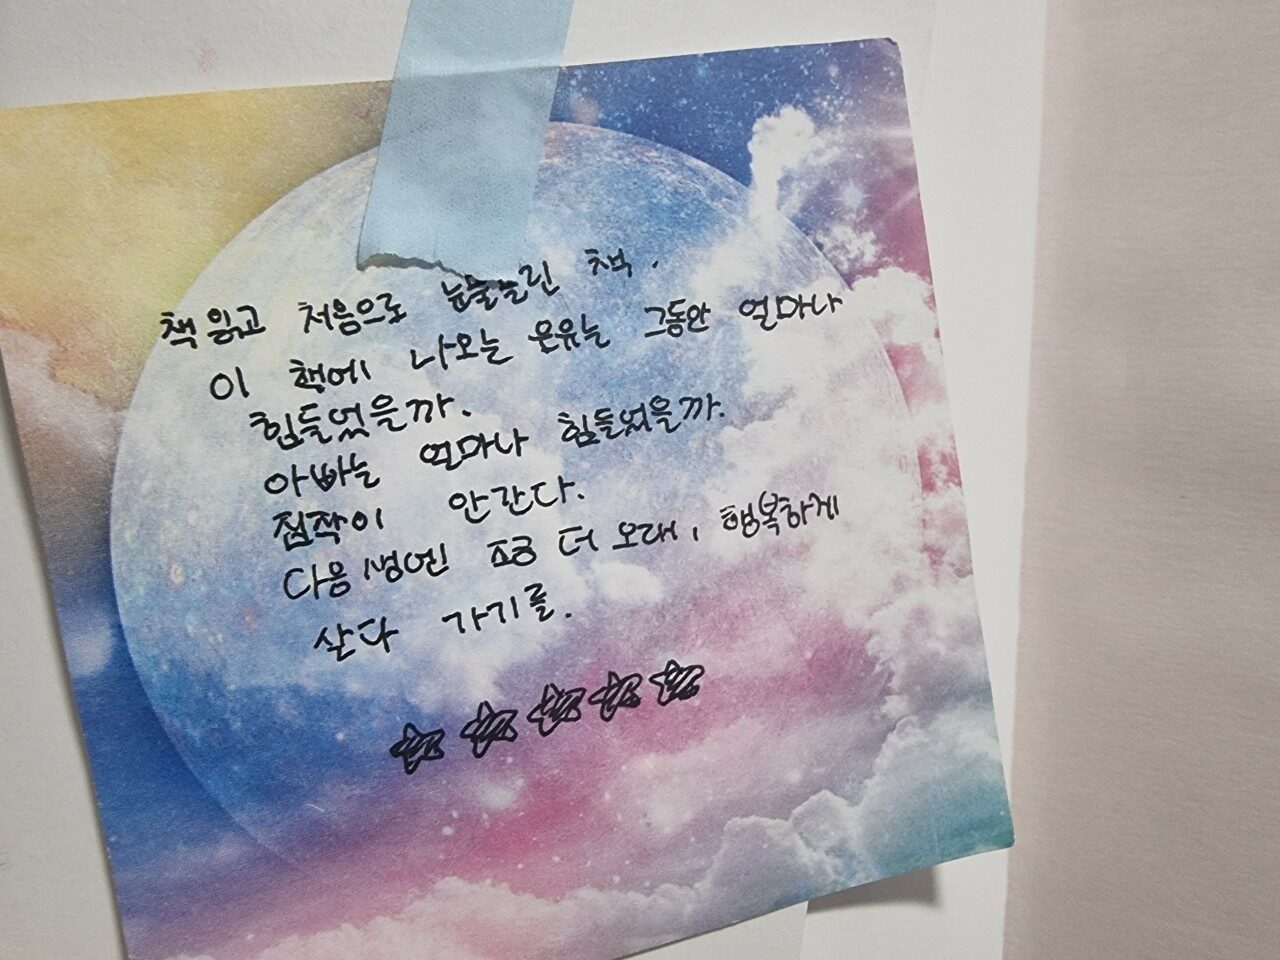 책 읽고 처음으로 눈물흘린 책.
이 책에 나오는 온유는 그동안 얼마나
힘들었을까.
아빠는 얼마나 힘들었을까.
짐작이 안간다.
다음생엔 조금 더 오래, 행복하게
살다 가기를.